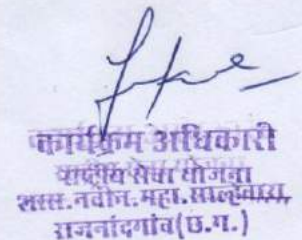 कार्यक्रम अधिकारी
राष्ट्रीय सेवा योजना
शास. नवीन. महा. साल्हेवारा,
राजनांदगांव (छ.ग.)